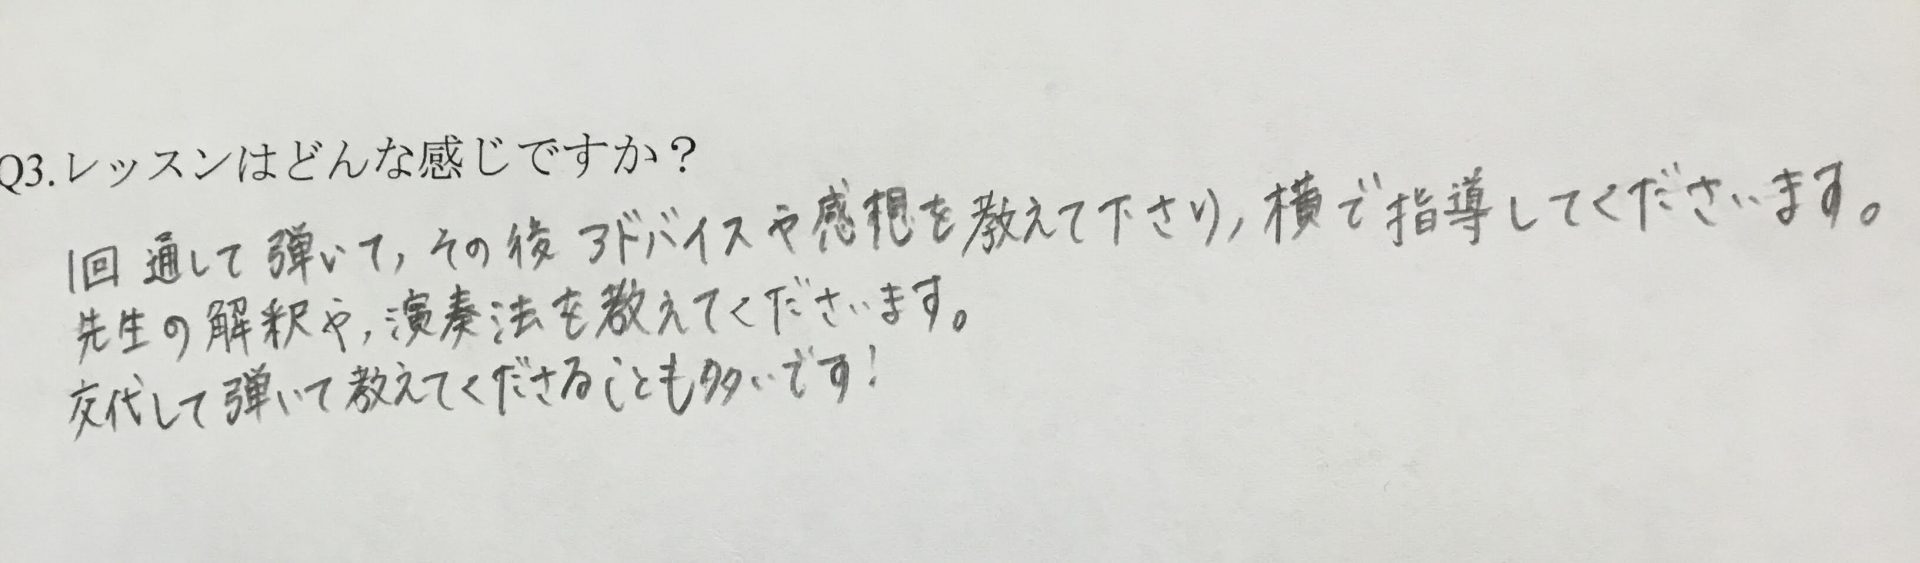 Q3.レッスンはどんな感じですか？
1回通して弾いて,その後アドバイスや感想を教えて下さり,横で指導してくださいます。
先生の解釈や,演奏法を教えてくださいます。
交代して弾いて教えてくださることも多いです!